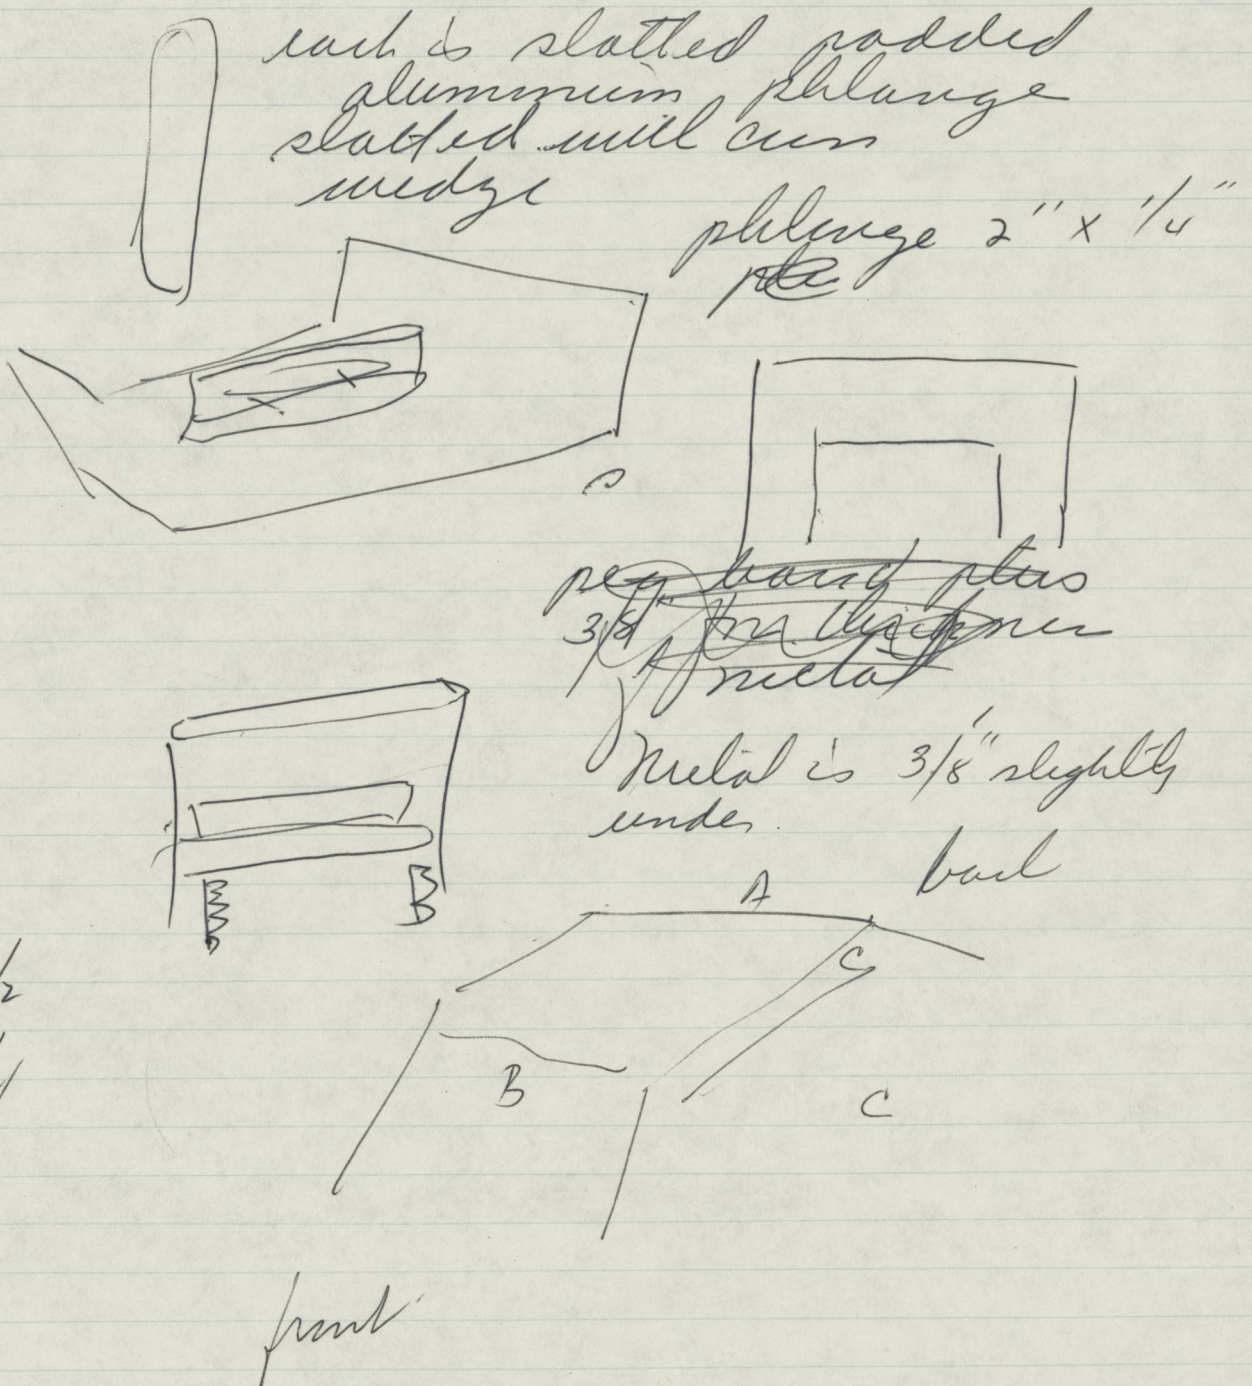 each is slatted padded
aluminum phlange
slatted will cun
wedge
phlange 2" x 1/4"
peg board plus
3/8" for thickner
metal
Metal is 3/8" slightly
under.
back
A
C
B
C
front